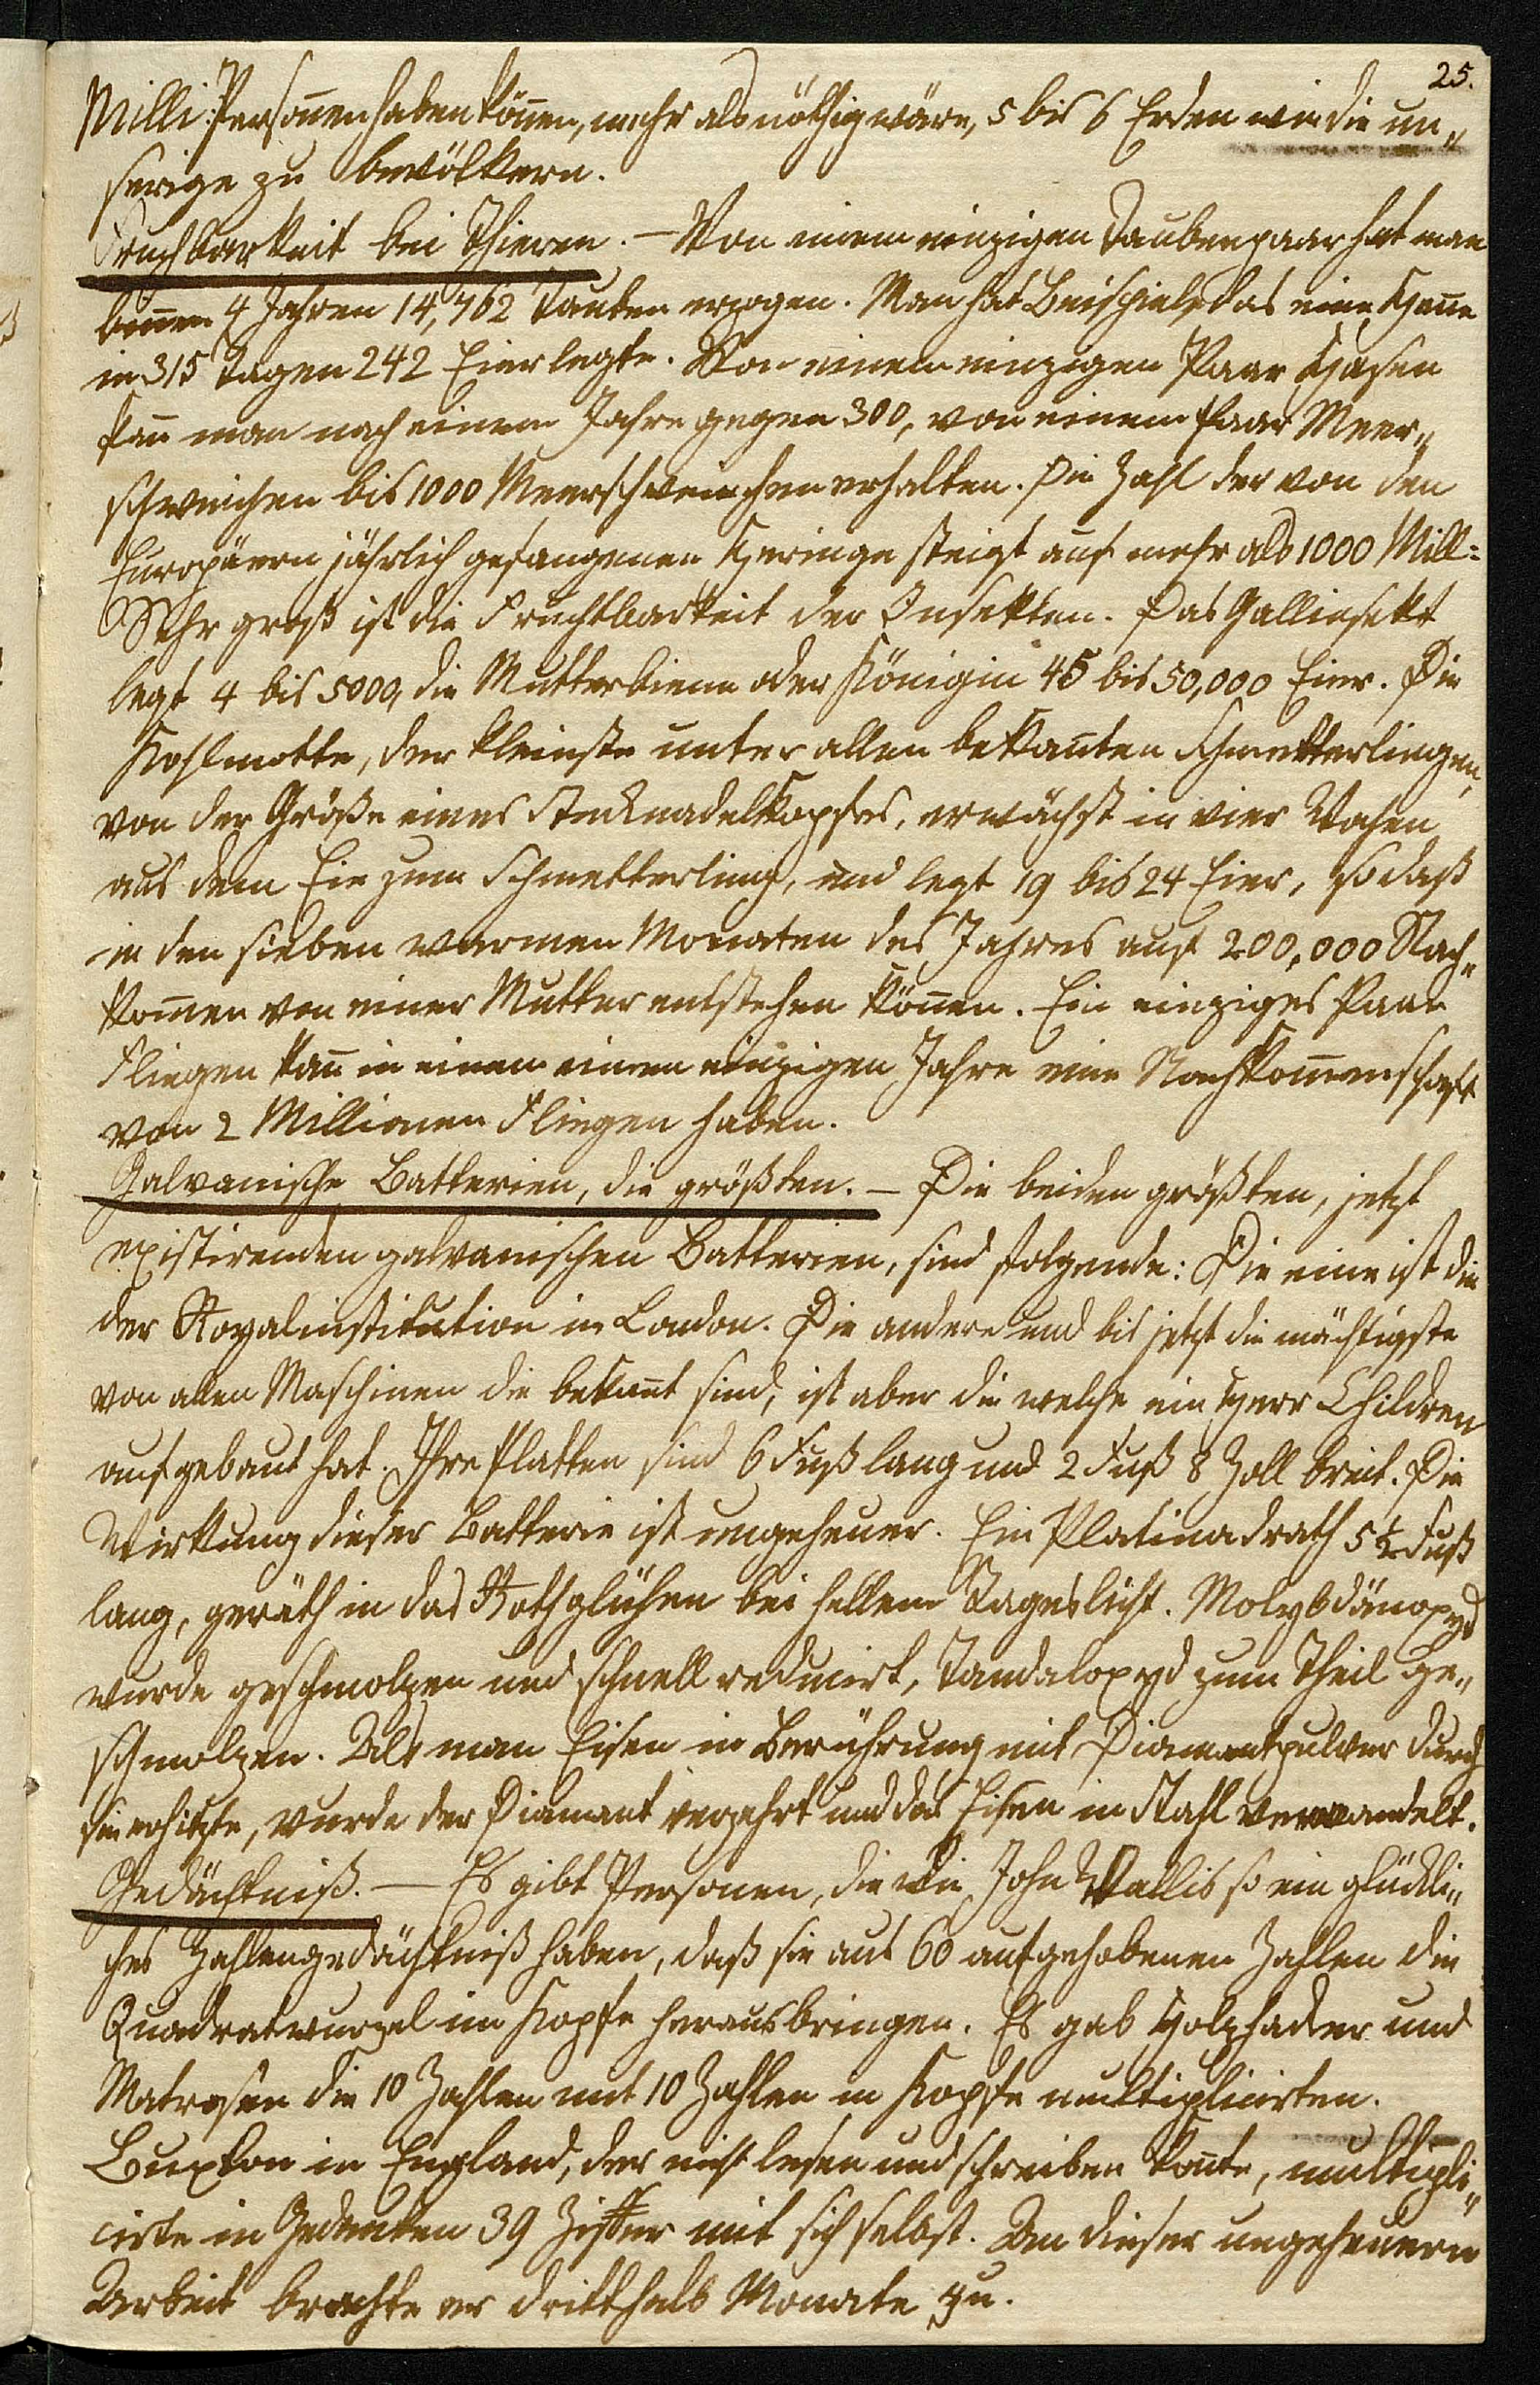 25.
Milli: Persoñen haben köñen, mehr als nöthig wäre, 5 bis 6 Erden wie die un„
serige zu bevölkern.
Fruchtbarkeit bei Thieren. — Von einem einzigen Taubenpaar hat man
biñen 4 Jahren 14,762 Tauben erzogen. Man hat Beispiele, das eine Heñe
in 315 Tagen 242 Eier legte. Von einem einzigen Paar Hasen
kañ man nach einem Jahre gegen 300, von einem Paar Meer„
schweinchen bis 1000 Meerschweinchen erhalten. Die Zahl der von den
Europäern jährlich gefangenen Heringe steigt auf mehr als 1000 Mill:
Sehr groß ist die Fruchtbarkeit der Insekten. Das Gallinsekt
legt 4 bis 5000, die Mutterbiene oder Königin 45 bis 50,000 Eier. Die
Kohlmotte, der kleinste unter allen bekañten Schmetterlingen,
von der Größe eines Stecknadelkopfes, erwächst in vier Wochen
aus dem Eie zum Schmetterling, und legt 19 bis 24 Eier, so daß
in den sieben warmen Monaten des Jahres auf 200,000 Nach„
kom̃en von einer Mutter entstehen köñen. Ein einziges Paar
Fliegen kañ in einem einem einzigen Jahre eine Nachkom̃enschaft
von 2 Millionen Fliegen haben.
Galvanische Batterien, die größten. — Die beiden größten, jetzt
existirenden galvanischen Batterien, sind folgende: Die eine ist die
der Royalinstitution in London. Die andere und bis jetzt die mächtigste
von allen Maschinen die bekañt sind, ist aber die welche ein Herr Children
aufgebaut hat. Ihre Platten sind 6 Fuß lang und 2 Fuß 8 Zoll breit. Die
Wirkung dieser Batterie ist ungeheuer. Ein Platinadrath 5½ Fuß
lang, geräth in das Rothglühen bei hellem Tageslicht. Molybdänoxyd
wurde geschmolzen und schnell reducirt, Tandaloxyd zum Theil ge„
schmolzen. Als man Eisen in Berührung mit Diamantpulver durch
sie erhitzte, wurde der Diamant verzehrt und das Eisen in Stahl verwandelt.
Gedächtniß. — Es gibt Personen, die wie John Wallis so ein glückli„
ches Zahlengedächtniß haben, daß sie aus 60 aufgehobenen Zahlen die
Quadratwurzel im Kopfe herausbringen. Es gab Holzhacker und
Matrosen die 10 Zahlen mit 10 Zahlen im Kopfe multiplicirten.
Buxton in England, der nicht lesen und schreiben koñte, multipli„
cirte in Gedanken 39 Ziffer mit sich selbst. An dieser ungeheuern
Arbeit brachte er dritthalb Monate zu.